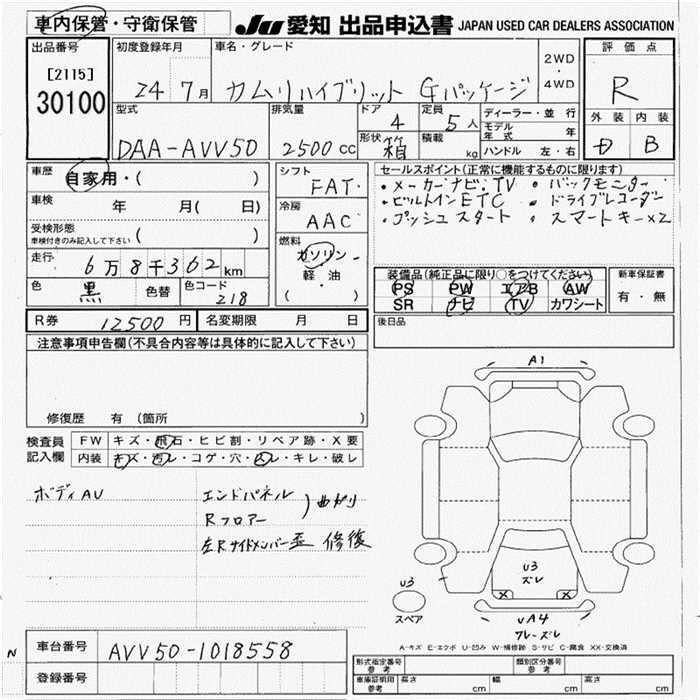 車内保管・守衛保管
JU 愛知 出品申込書 JAPAN USED CAR DEALERS ASSOCIATION
出品番号
[2115]
30100
初度登録年月
24 7月
車名・グレード
カムリハイブリット Gパッケージ
2WD
・
4WD
評価点
R
外装 内装
D B
型式
DAA-AVV50
排気量
2500 cc
ドア
4
形状 箱
定員
5人
積載
kg
ディーラー・並行
モデル年式 年
ハンドル 左・右
車歴
自家用・( )
車検 年 月( 日)
受検形態
車検付きのみ記入して下さい ( )
走行
6万8千362km
色 黒 色替
色コード 218
シフト
FAT
冷房
AAC
燃料
ガソリン
軽・油
( ・ )
セールスポイント(正常に機能するものに限ります)
・メーカーナビ、TV ・バックモニター
・ビルトインETC ・ドライブレコーダー
・プッシュスタート ・スマートキー×2
装備品(純正品に限り○をつけてください)
PS PW エアB AW
SR ナビ TV カワシート
新車保証書
有・無
R券 12500円
名変期限 月 日
後日品
注意事項申告欄(不具合内容等は具体的に記入して下さい)
修復歴 有 (箇所 )
検査員記入欄
FW キズ・飛石・ヒビ割・リペア跡・X要
内装 キズ・汚レ・コゲ・穴・凹レ・キレ・破レ
ボディAU
エンドパネル
Rフロアー
)曲がり
左Rサイドメンバー歪 修復
A1
U3
ズレ
X X
U3
スペア
UA4
ワレ・ズレ
A-キズ E-エクボ U-凹み W-補修跡 S-サビ C-腐食 XX-交換済
N
車台番号
AVV50-1018558
登録番号
形式指定番号
参考
類別区分番号
参考
車庫証明用
参考
長さ cm
幅 cm
高さ cm